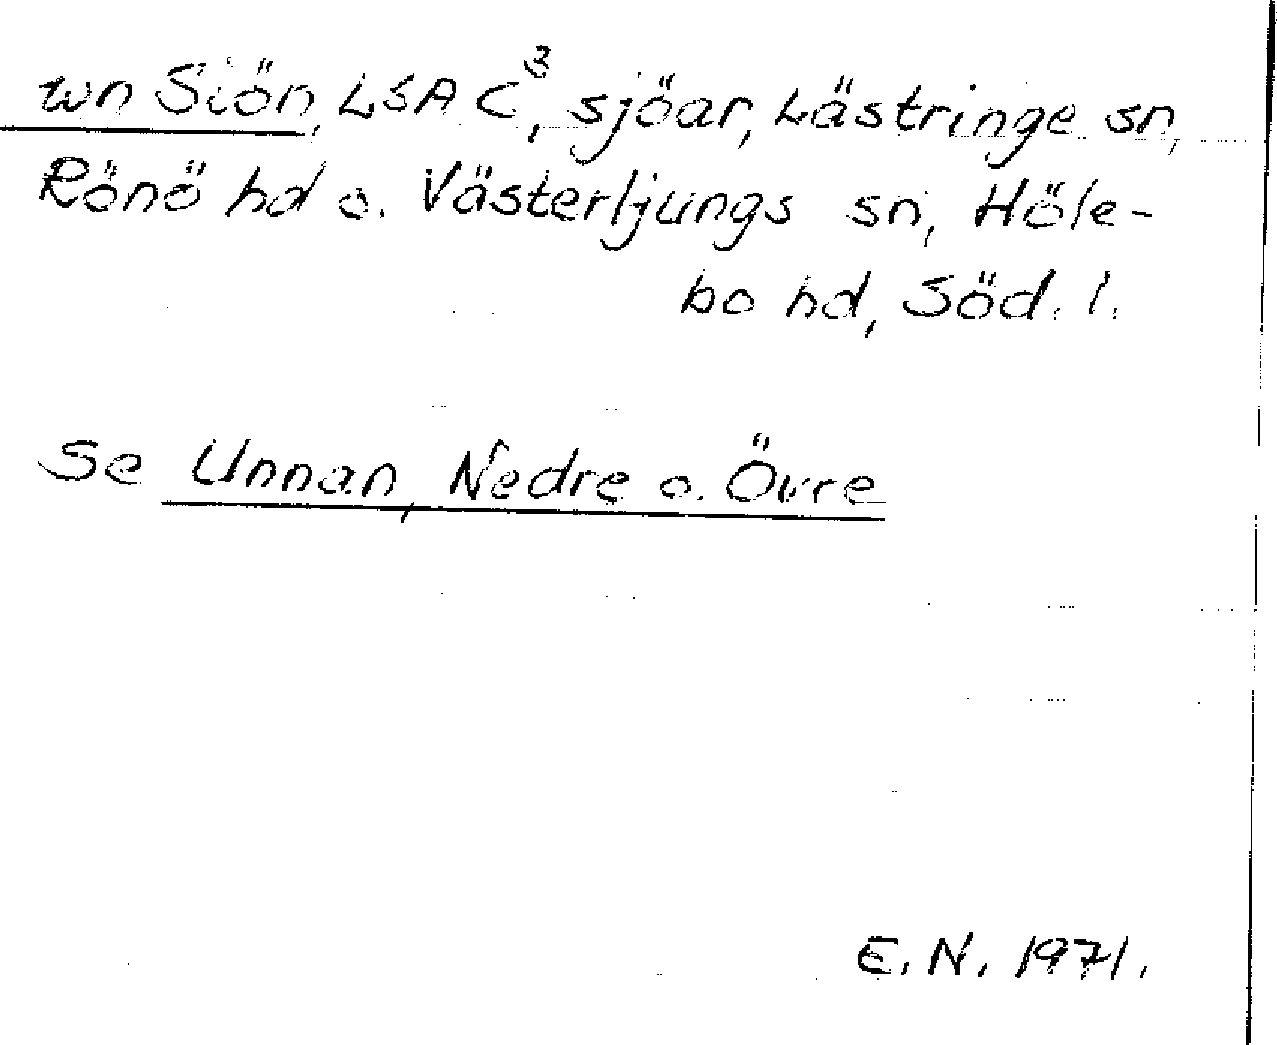 wn Siön, LSA C³, sjöar, Lästringe sn,
Rönö hd o. Västerljungs sn, Höle-
bo hd, Söd. l.
Se Unnan, Nedre o. Övre
E. N. 1971.